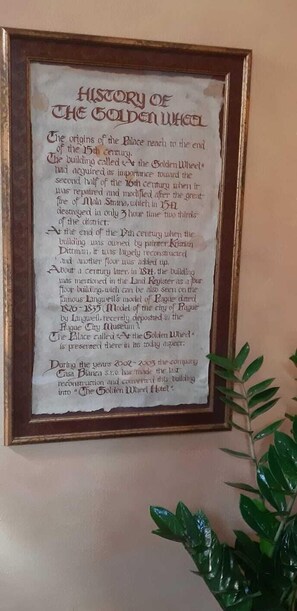 HISTORY OF
THE GOLDEN WHEEL
The origins of the Palace reach to the end
of the 13th century.
The building called »At the Golden Wheel«
had acquired its importance toward the
second half of the 16th century when it
was repaired and modified after the great
fire of Mala Strana, which in 1541
destroyed in only 3 hour time two thirds
of the district.
At the end of the 17th century when the
building was owned by painter Kristian
Dittman, it was largely reconstructed
and another floor was added up.
About a century later, in 1811, the building
was mentioned in the Land Register as a four
floor building, wich can be also seen on the
famous Langweil's model of Prague dated
1826-1835 (Model of the city of Prague
by Langweil, recently deposited in the
Prague City Museum).
The Palace called »At the Golden Wheel«
is presented there in its today aspect.
During the years 2002-2003 the company
Casa Bianca s.r.o. has made the last
reconstruction and converted this building
into "The Golden Wheel Hotel".